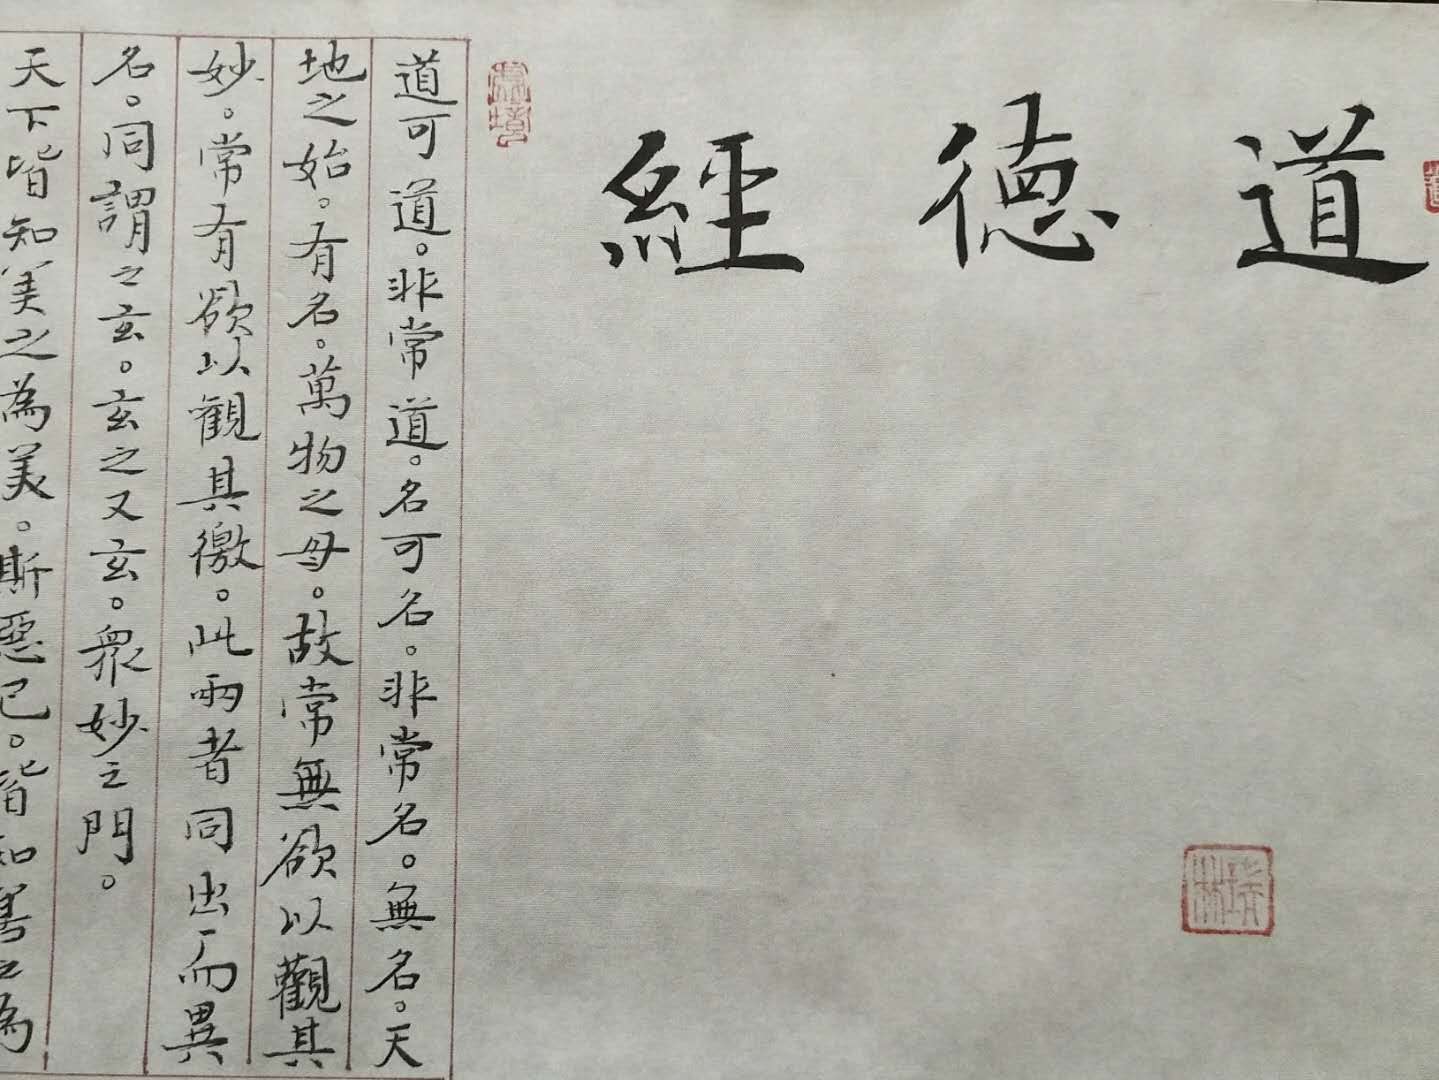 道德經
道可道。非常道。名可名。非常名。無名。天
地之始。有名。萬物之母。故常無欲以觀其
妙。常有欲以觀其徼。此兩者同出而異
名。同謂之玄。玄之又玄。衆妙之門。
天下皆知美之為美。斯惡已。皆知善之為